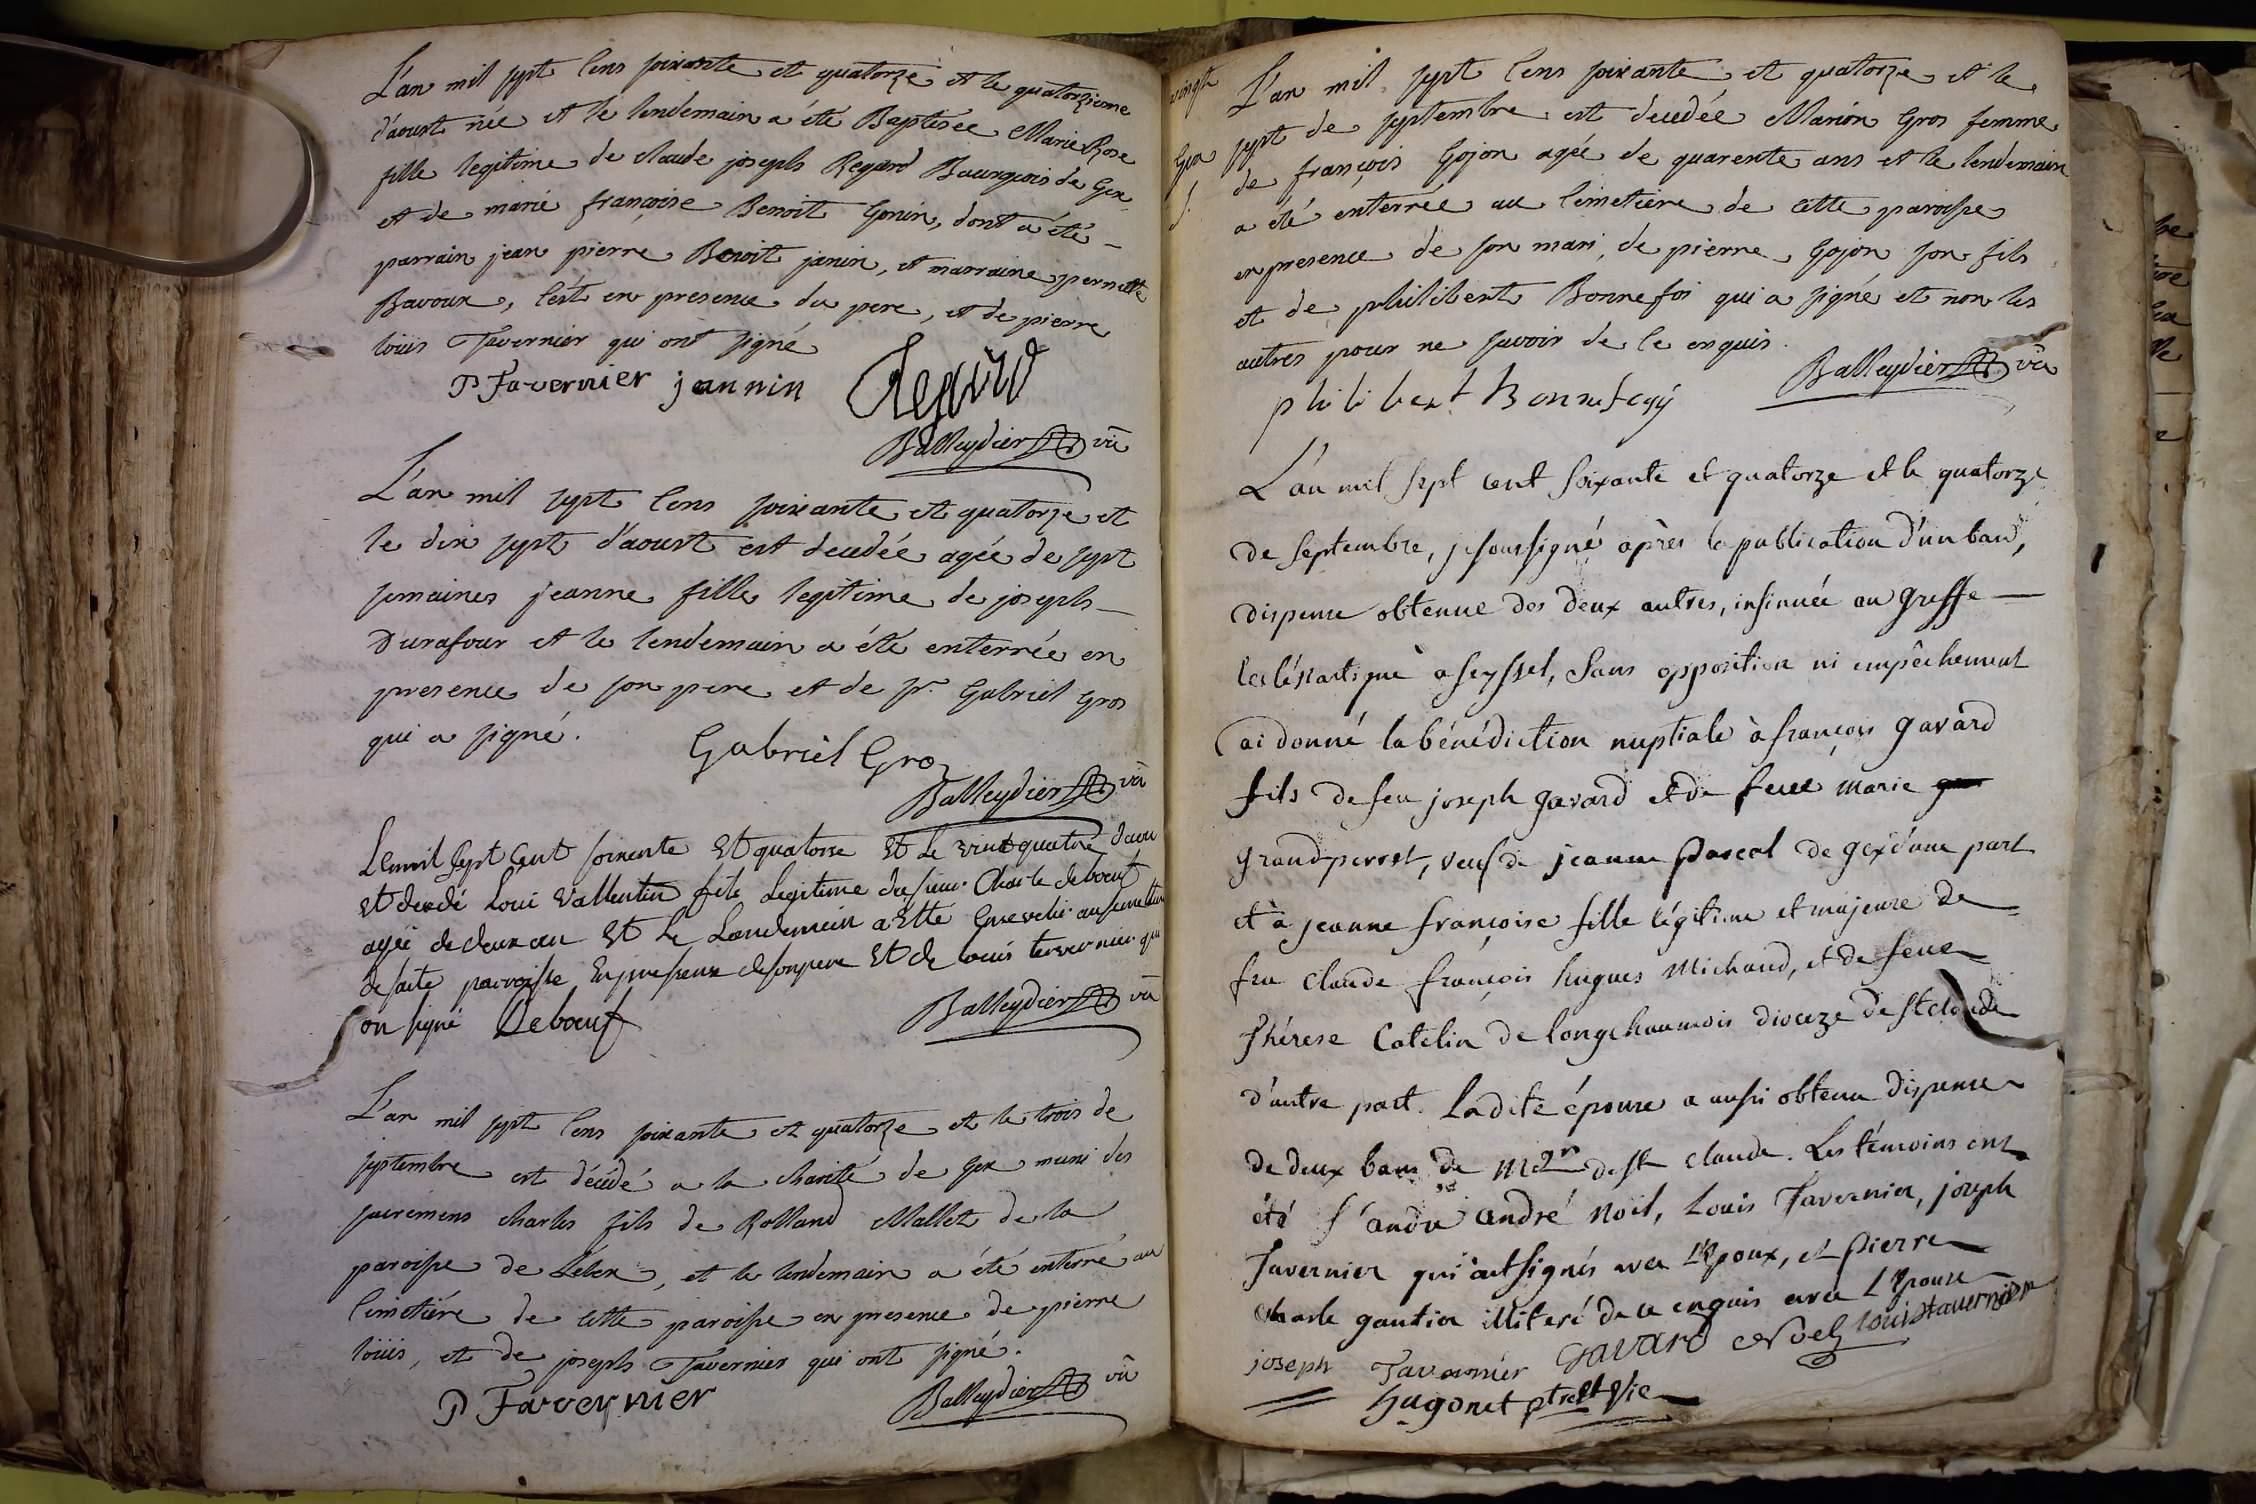 L'an mil sept cens soixante et quatorze et le quatorzieme
d'aoust née et le lendemain a été Baptisée Marie Rose
fille legitime de claude joseph Regard Bourgeois de Gex
et de marie françoise Benoit Gonin, dont a été
parrain jean pierre Benoit janin, et marraine pernette
Bavoux, c'est en presence du pere, et de pierre
loüis Tavernier qui ont signé
P Tavernier jannin Regard
Balleydier vic
L'an mil sept cens soixante et quatorze et
le dix sept d'aoust est decedée agée de sept
semaines jeanne fille legitime de joseph
Durafour et le lendemain a été enterrée en
presence de son pere et de sr. Gabriel Gros
qui a signé.
Gabriel Gros
Balleydier vic
Lenmil sept cent soixente Et quatorse Et Le vint quatre daou
Et decedé Loui vallentin fils Legitime du sieur Charle deboeuf
agée de deux an Et Le Landemein a Etté Ensevelie au semettiere
de saite parroisse En presense de son pere Et de louis tavernier qui
on signé Deboeuf
Balleydier vic
L'an mil sept cens soixante et quatorze et le trois de
septembre est décédé a la charité de Gex muni des
sacremens charles fils de Rolland Mallet de la
paroisse de Lélex, et le lendemain a été enterré au
cimetiére de cette paroisse en presence de pierre
loüis, et de joseph Tavernier qui ont signé.
P Tavernier
Balleydier vic
L'an mil sept cens soixante et quatorze et le
sept de septembre est decedée Marion Gros femme
de françois Gojon agée de quarente ans et le lendemain
a été enterrée au cimetiere de cette paroisse
en presence de son mari, de pierre Gojon son fils
et de philibert Bonnefoi qui a signé et non les
autres pour ne savoir de ce enquis.
Balleydier vic
philibert Bonnefoy
L'an mil sept cent soixante et quatorze et le quatorze
de septembre, je soussigné après la publication d'un ban,
dispense obtenue des deux autres, insinuée au greffe
ecclésiastique à seyssel, sans opposition ni empêchement
ai donné la bénédiction nuptiale à françois gavard
fils de feu joseph gavard et de feue marie
grandperret, veuf de jeanne Pascal de gex d'une part
et à jeanne françoise fille légitime et majeure de
feu claude françois hugues Michaud, et de feue
Thérese Catelin de longchaumois diocèze de st claude
d'autre part. Ladite épouse a aussi obtenu dispense
de deux bans de Mgr de st claude. Les témoins ont
été s. andré Noel, Louis Tavernier, joseph
Tavernier qui ont signés avec l'Epoux, et pierre
charle gautier illiteré de ce enquis avec L'Epouse
joseph Tavernier Gavard Noel louis tavernier
hugonet ptre et vic